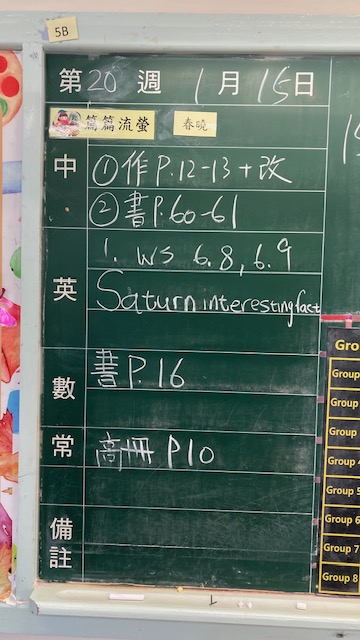 5B
第20週 1月15日
篇篇流螢 春曉
中 ①作P.12-13+改
②書P.60-61
英 1. WS 6.8, 6.9
Saturn interesting fact
數 書P.16
常 高冊 P10
備註
Gro
Group
Group
Group
Group 4
Group 5
Group 6
Group 7
Group 8